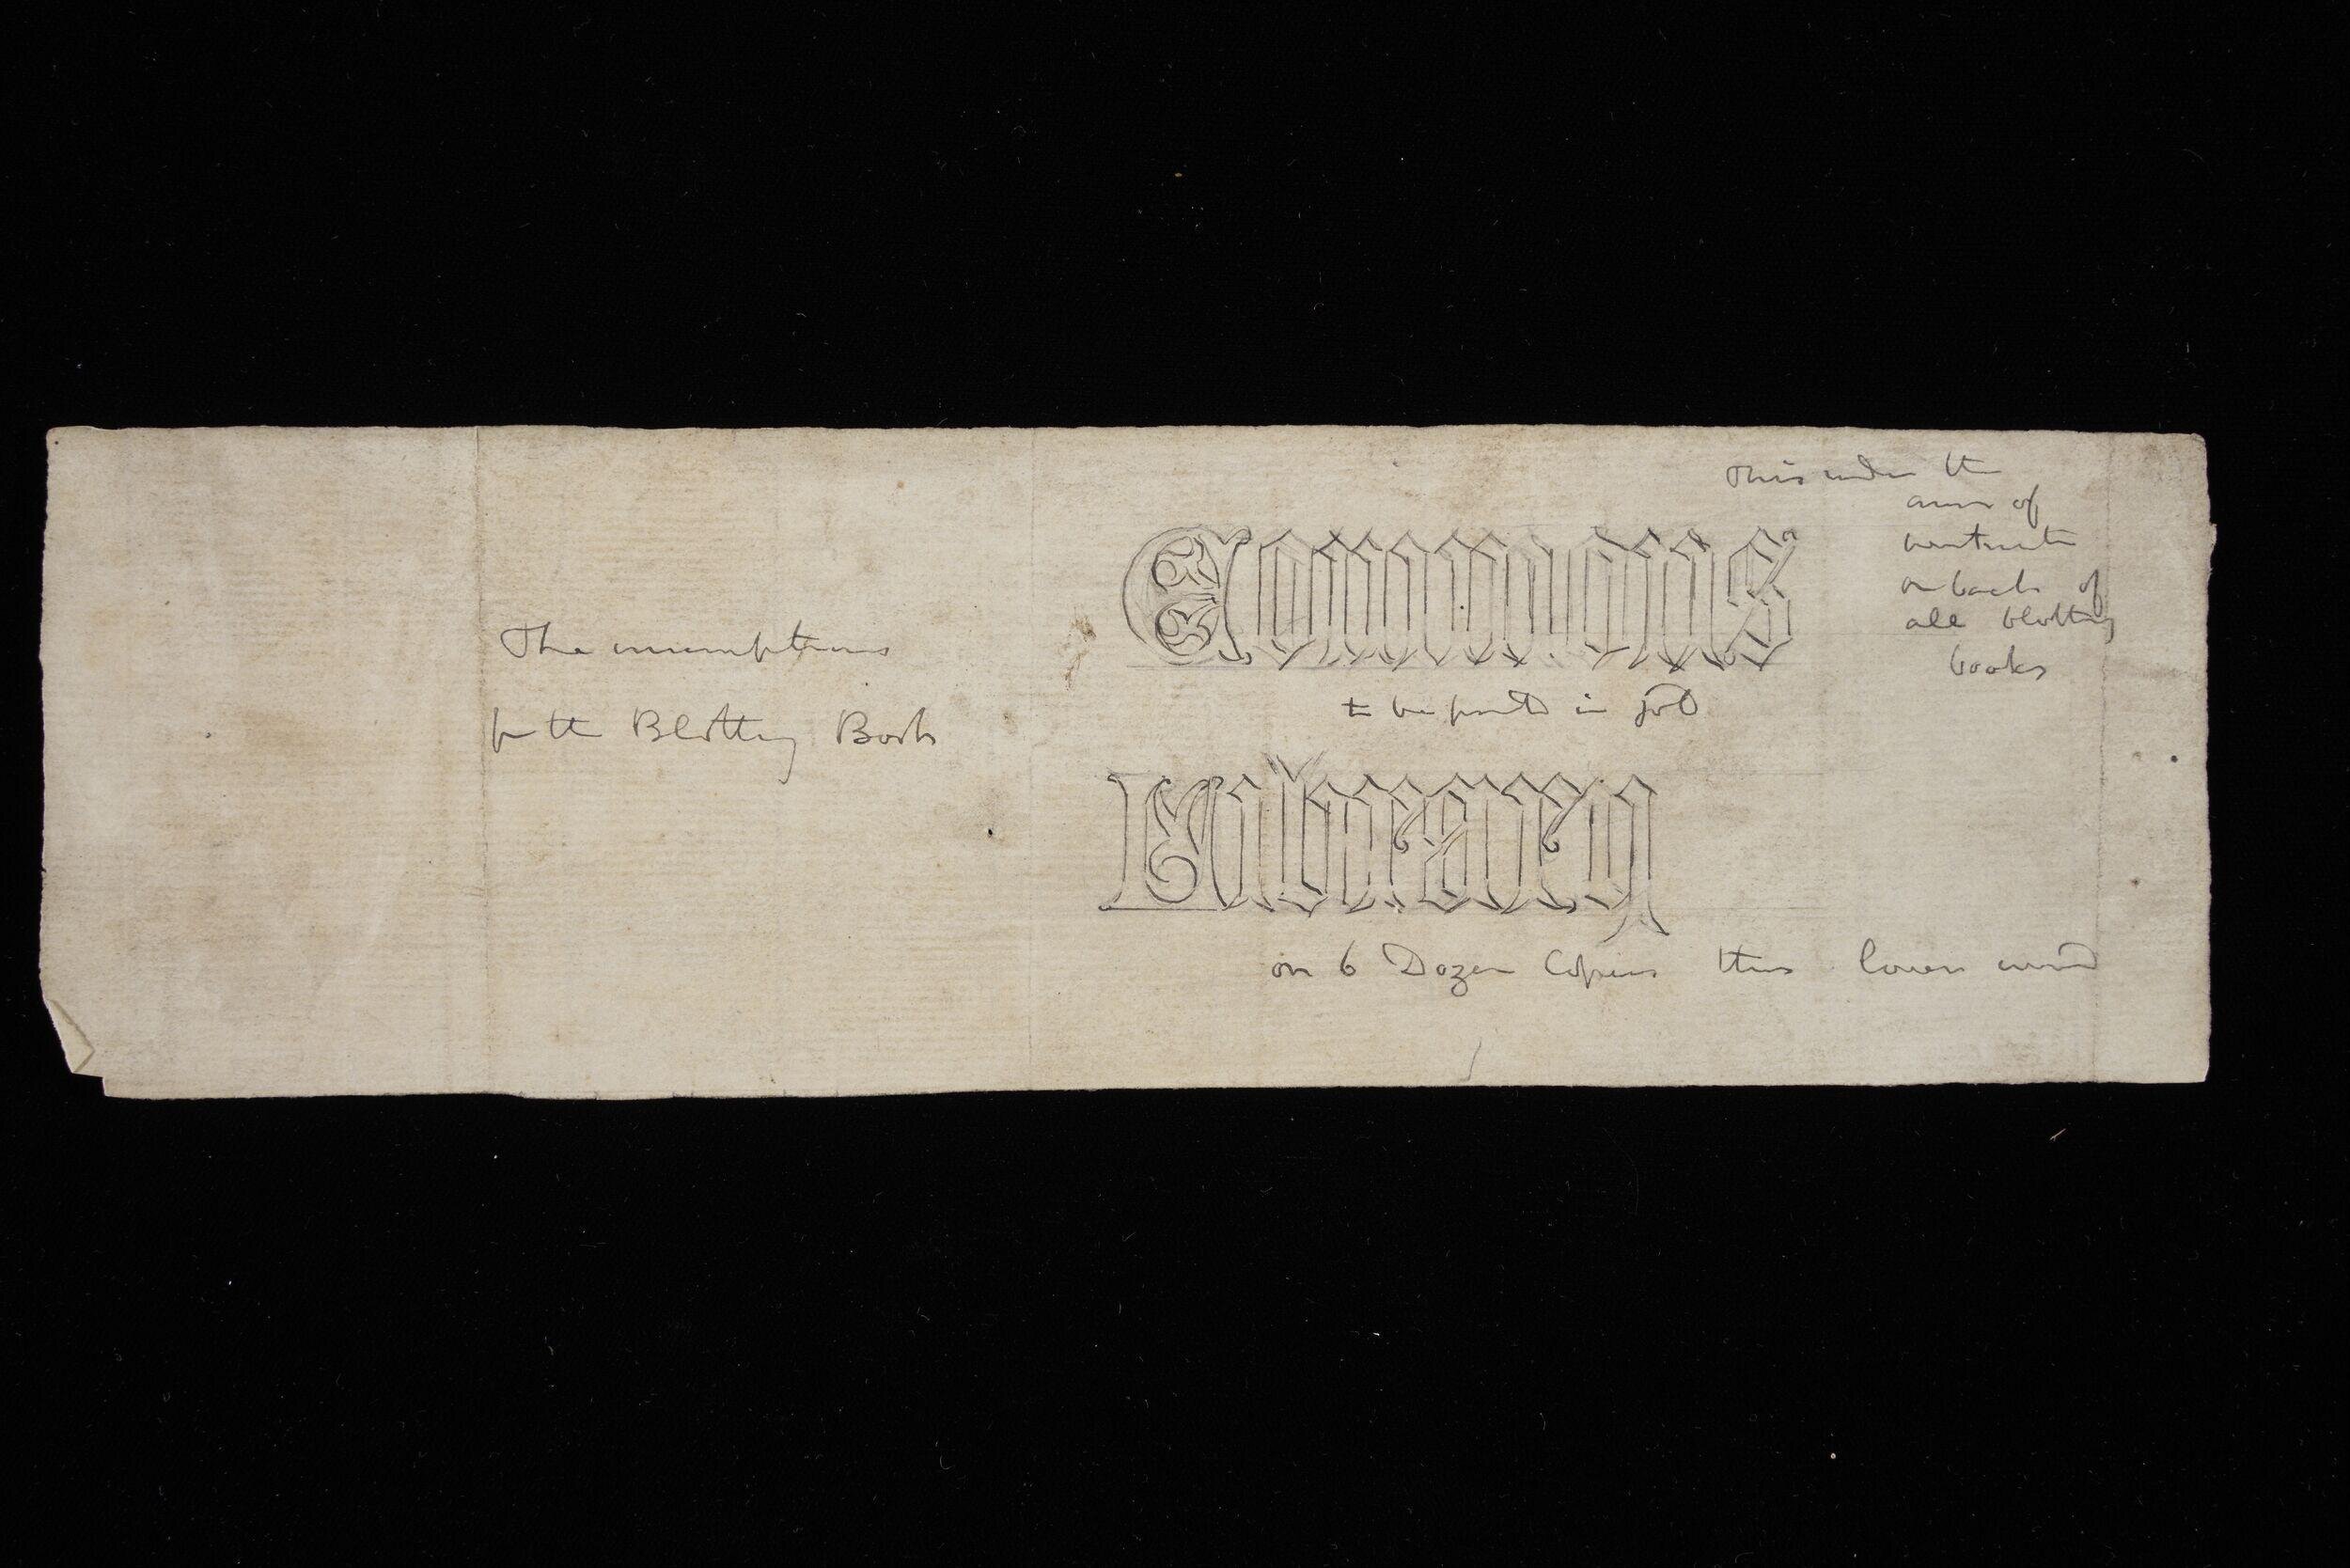 The inscriptions
for the Blotting Books
This under the
arms of
westminster
on back of
all blotting
books
Commons
to be printed in gold
Library
on 6 Dozen Copies this lower word